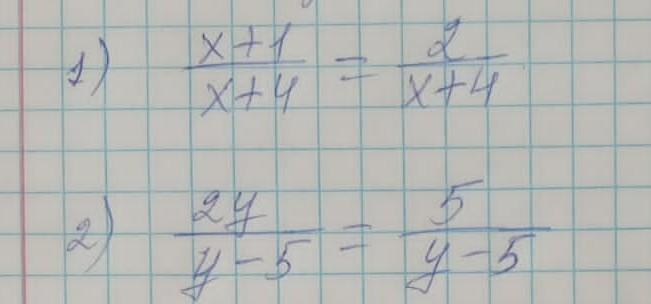 1) (x+1)/(x+4) = 2/(x+4)
2) 2y/(y-5) = 5/(y-5)